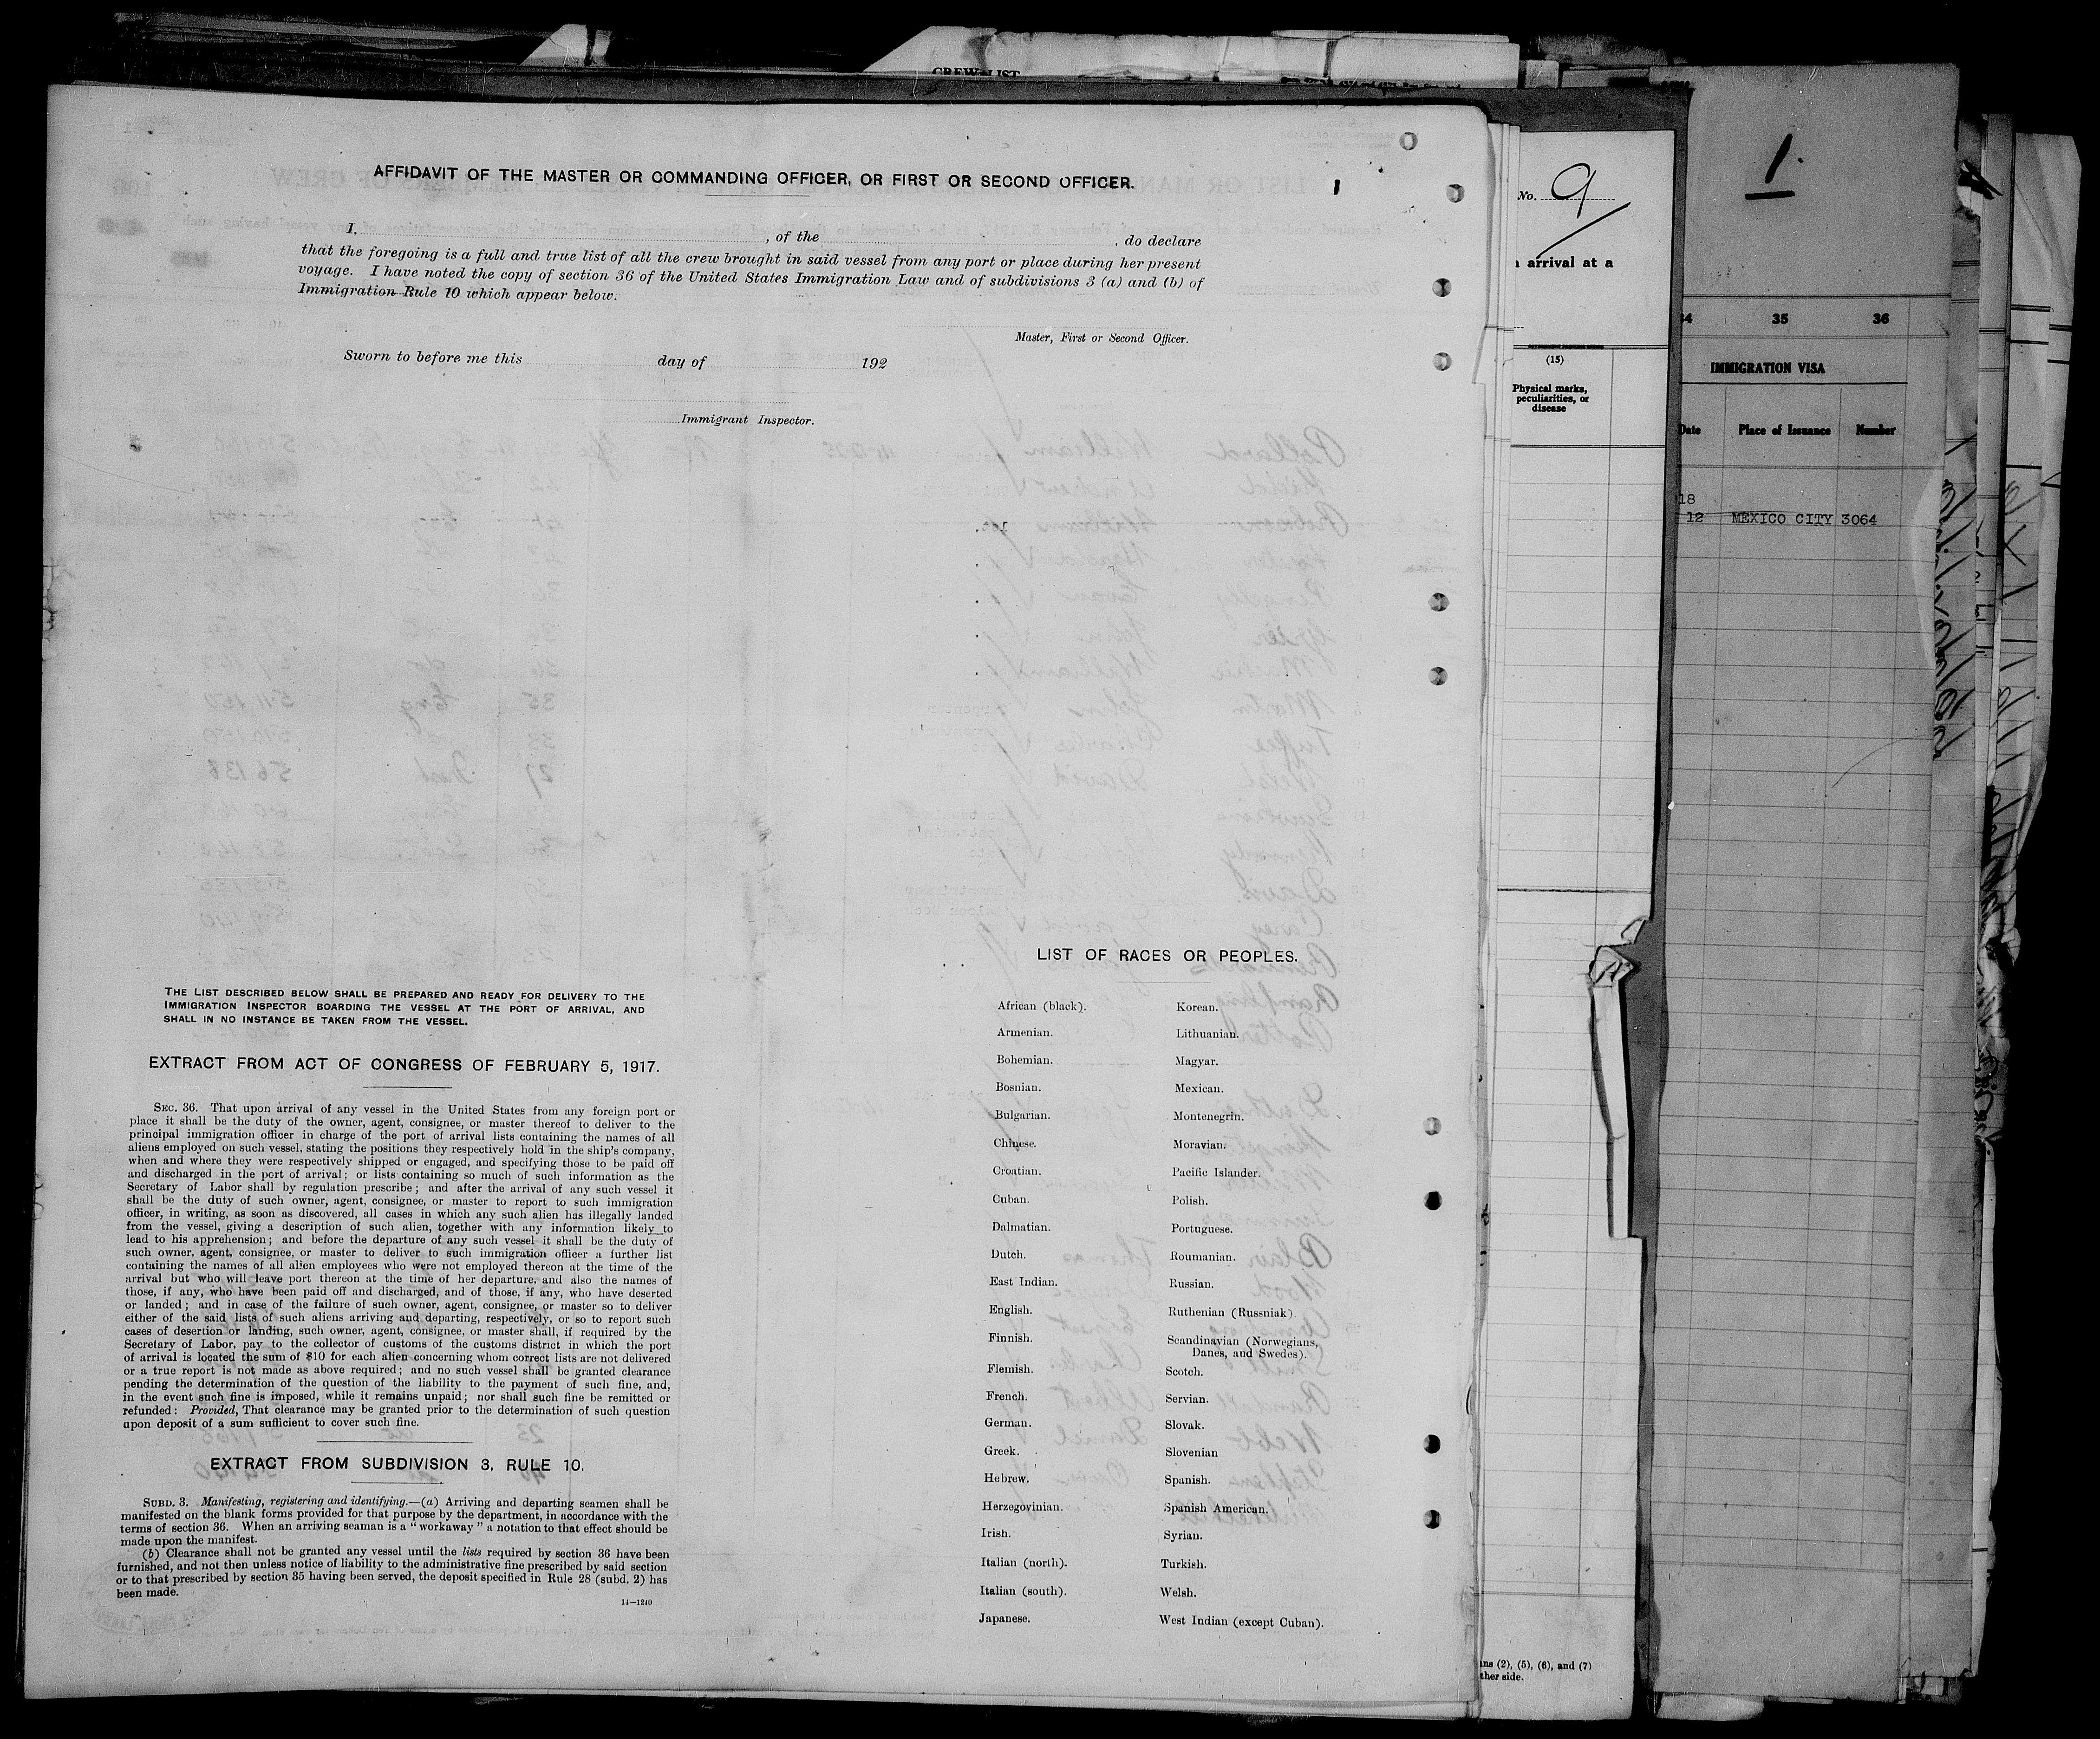 CREW LIST
AFFIDAVIT OF THE MASTER OR COMMANDING OFFICER, OR FIRST OR SECOND OFFICER.
I, , of the , do declare
that the foregoing is a full and true list of all the crew brought in said vessel from any port or place during her present
voyage. I have noted the copy of section 36 of the United States Immigration Law and of subdivisions 3 (a) and (b) of
Immigration Rule 10 which appear below.
Master, First or Second Officer.
Sworn to before me this day of 192
Immigrant Inspector.
THE LIST DESCRIBED BELOW SHALL BE PREPARED AND READY FOR DELIVERY TO THE
IMMIGRATION INSPECTOR BOARDING THE VESSEL AT THE PORT OF ARRIVAL, AND
SHALL IN NO INSTANCE BE TAKEN FROM THE VESSEL.
EXTRACT FROM ACT OF CONGRESS OF FEBRUARY 5, 1917.
SEC. 36. That upon arrival of any vessel in the United States from any foreign port or
place it shall be the duty of the owner, agent, consignee, or master thereof to deliver to the
principal immigration officer in charge of the port of arrival lists containing the names of all
aliens employed on such vessel, stating the positions they respectively hold in the ship's company,
when and where they were respectively shipped or engaged, and specifying those to be paid off
and discharged in the port of arrival; or lists containing so much of such information as the
Secretary of Labor shall by regulation prescribe; and after the arrival of any such vessel it
shall be the duty of such owner, agent, consignee, or master to report to such immigration
officer, in writing, as soon as discovered, all cases in which any such alien has illegally landed
from the vessel, giving a description of such alien, together with any information likely to
lead to his apprehension; and before the departure of any such vessel it shall be the duty of
such owner, agent, consignee, or master to deliver to such immigration officer a further list
containing the names of all alien employees who were not employed thereon at the time of the
arrival but who will leave port thereon at the time of her departure, and also the names of
those, if any, who have been paid off and discharged, and of those, if any, who have deserted
or landed; and in case of the failure of such owner, agent, consignee, or master so to deliver
either of the said lists of such aliens arriving and departing, respectively, or so to report such
cases of desertion or landing, such owner, agent, consignee, or master shall, if required by the
Secretary of Labor, pay to the collector of customs of the customs district in which the port
of arrival is located the sum of $10 for each alien concerning whom correct lists are not delivered
or a true report is not made as above required; and no such vessel shall be granted clearance
pending the determination of the question of the liability to the payment of such fine, and,
in the event such fine is imposed, while it remains unpaid; nor shall such fine be remitted or
refunded: Provided, That clearance may be granted prior to the determination of such question
upon deposit of a sum sufficient to cover such fine.
EXTRACT FROM SUBDIVISION 3, RULE 10.
SUBD. 3. Manifesting, registering and identifying.—(a) Arriving and departing seamen shall be
manifested on the blank forms provided for that purpose by the department, in accordance with the
terms of section 36. When an arriving seaman is a "workaway" a notation to that effect should be
made upon the manifest.
(b) Clearance shall not be granted any vessel until the lists required by section 36 have been
furnished, and not then unless notice of liability to the administrative fine prescribed by said section
or to that prescribed by section 35 having been served, the deposit specified in Rule 28 (subd. 2) has
been made.
14—1240
LIST OF RACES OR PEOPLES.
African (black).
Armenian.
Bohemian.
Bosnian.
Bulgarian.
Chinese.
Croatian.
Cuban.
Dalmatian.
Dutch.
East Indian.
English.
Finnish.
Flemish.
French.
German.
Greek.
Hebrew.
Herzegovinian.
Irish.
Italian (north).
Italian (south).
Japanese.
Korean.
Lithuanian.
Magyar.
Mexican.
Montenegrin.
Moravian.
Pacific Islander.
Polish.
Portuguese.
Roumanian.
Russian.
Ruthenian (Russniak).
Scandinavian (Norwegians,
Danes, and Swedes).
Scotch.
Servian.
Slovak.
Slovenian
Spanish.
Spanish American.
Syrian.
Turkish.
Welsh.
West Indian (except Cuban).
No. 9
arrival at a
(15)
Physical marks,
peculiarities, or
disease
(2), (5), (6), and (7)
side.
1
35 36
IMMIGRATION VISA
Date Place of Issuance Number
18
12 MEXICO CITY 3064